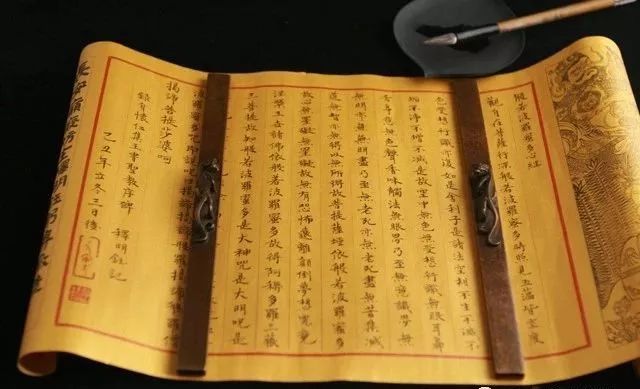 般若波羅蜜多心經
觀自在菩薩行深般若波羅蜜多時照見五蘊皆空度
色受想行識亦復如是舍利子是諸法空相不生不滅不
垢不淨不增不減是故空中無色無受想行識無眼耳鼻
舌身意無色聲香味觸法無眼界乃至無意識界無
無明亦無無明盡乃至無老死亦無老死盡無苦集滅
道無智亦無得以無所得故菩提薩埵依般若波羅蜜多
故心無罣礙無罣礙故無有恐怖遠離顛倒夢想究竟
涅槃三世諸佛依般若波羅蜜多故得阿耨多羅三藐
三菩提故知般若波羅蜜多是大神咒是大明咒是
波羅蜜多咒即說咒曰揭諦揭諦般羅揭諦般羅僧
揭諦菩提莎婆呵
錄自懷仁集王書聖教序碑 釋明鈺記
己丑年立冬三日後